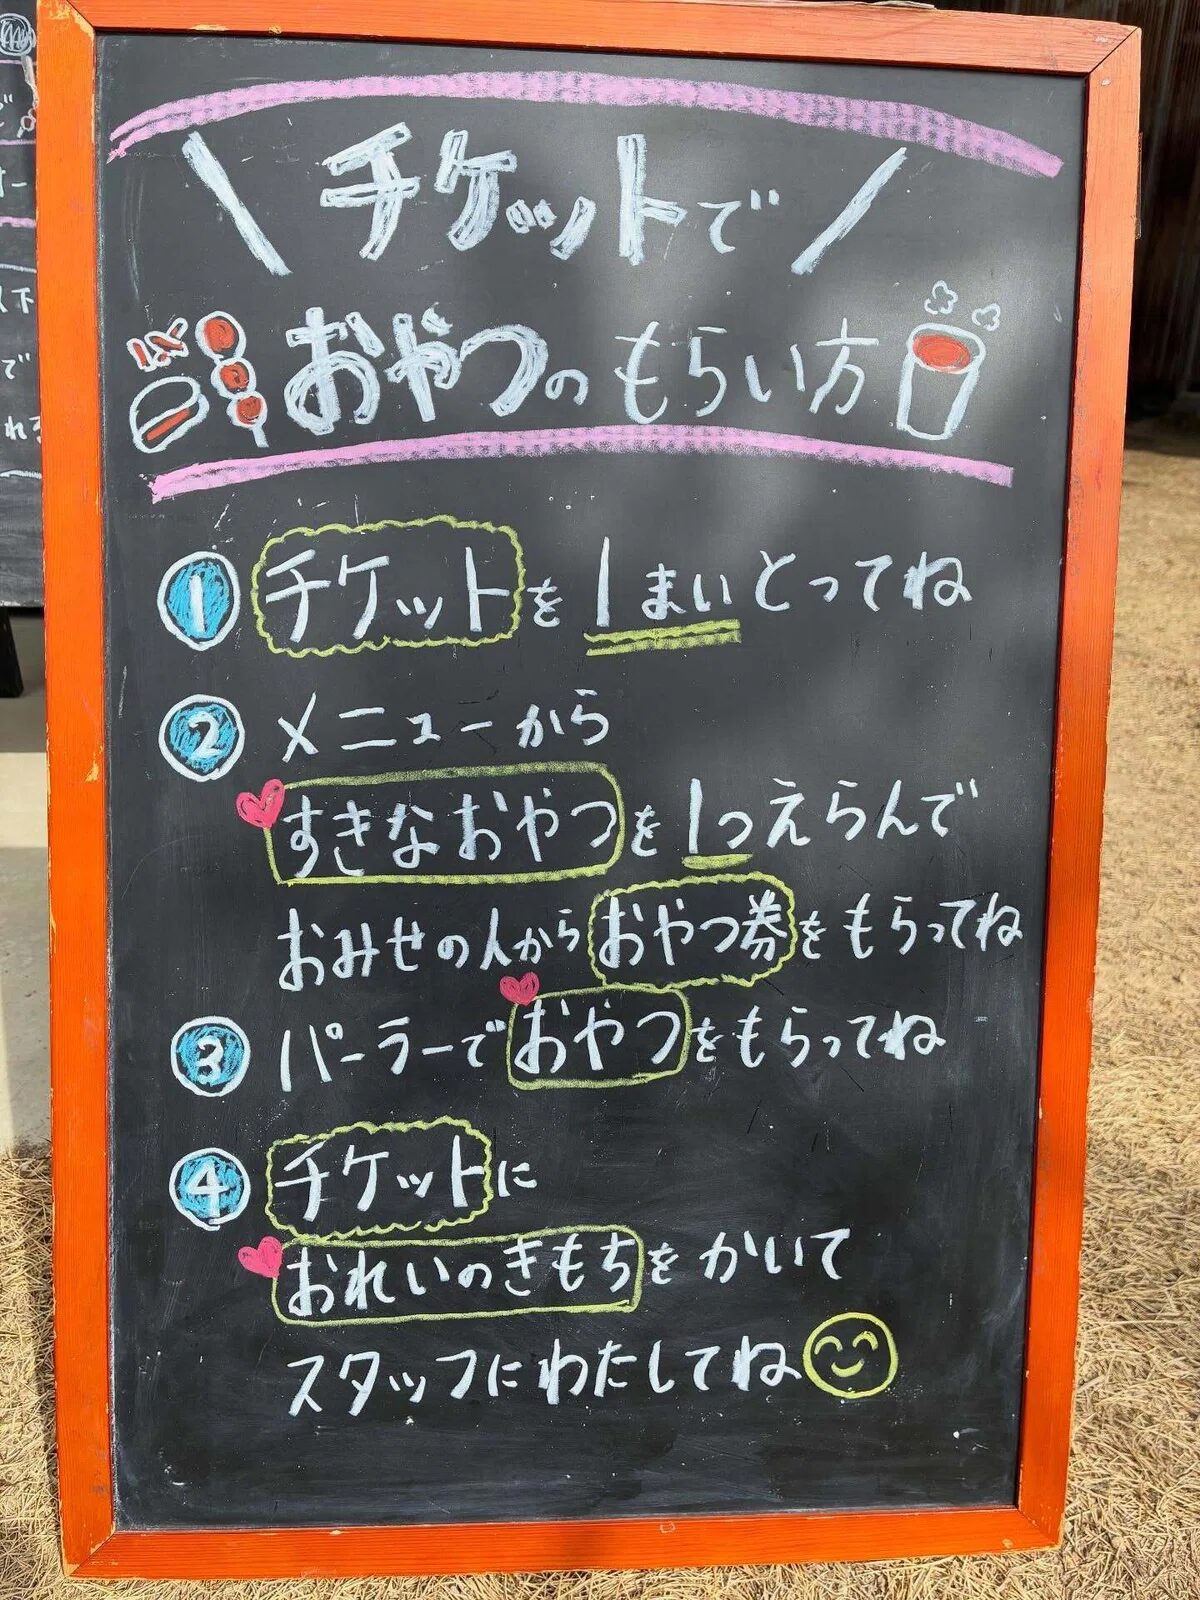 チケットで
おやつのもらい方
1 チケットを1まいとってね
2 メニューから
すきなおやつを1つえらんで
おみせの人からおやつ券をもらってね
3 パーラーでおやつをもらってね
4 チケットに
おれいのきもちをかいて
スタッフにわたしてね